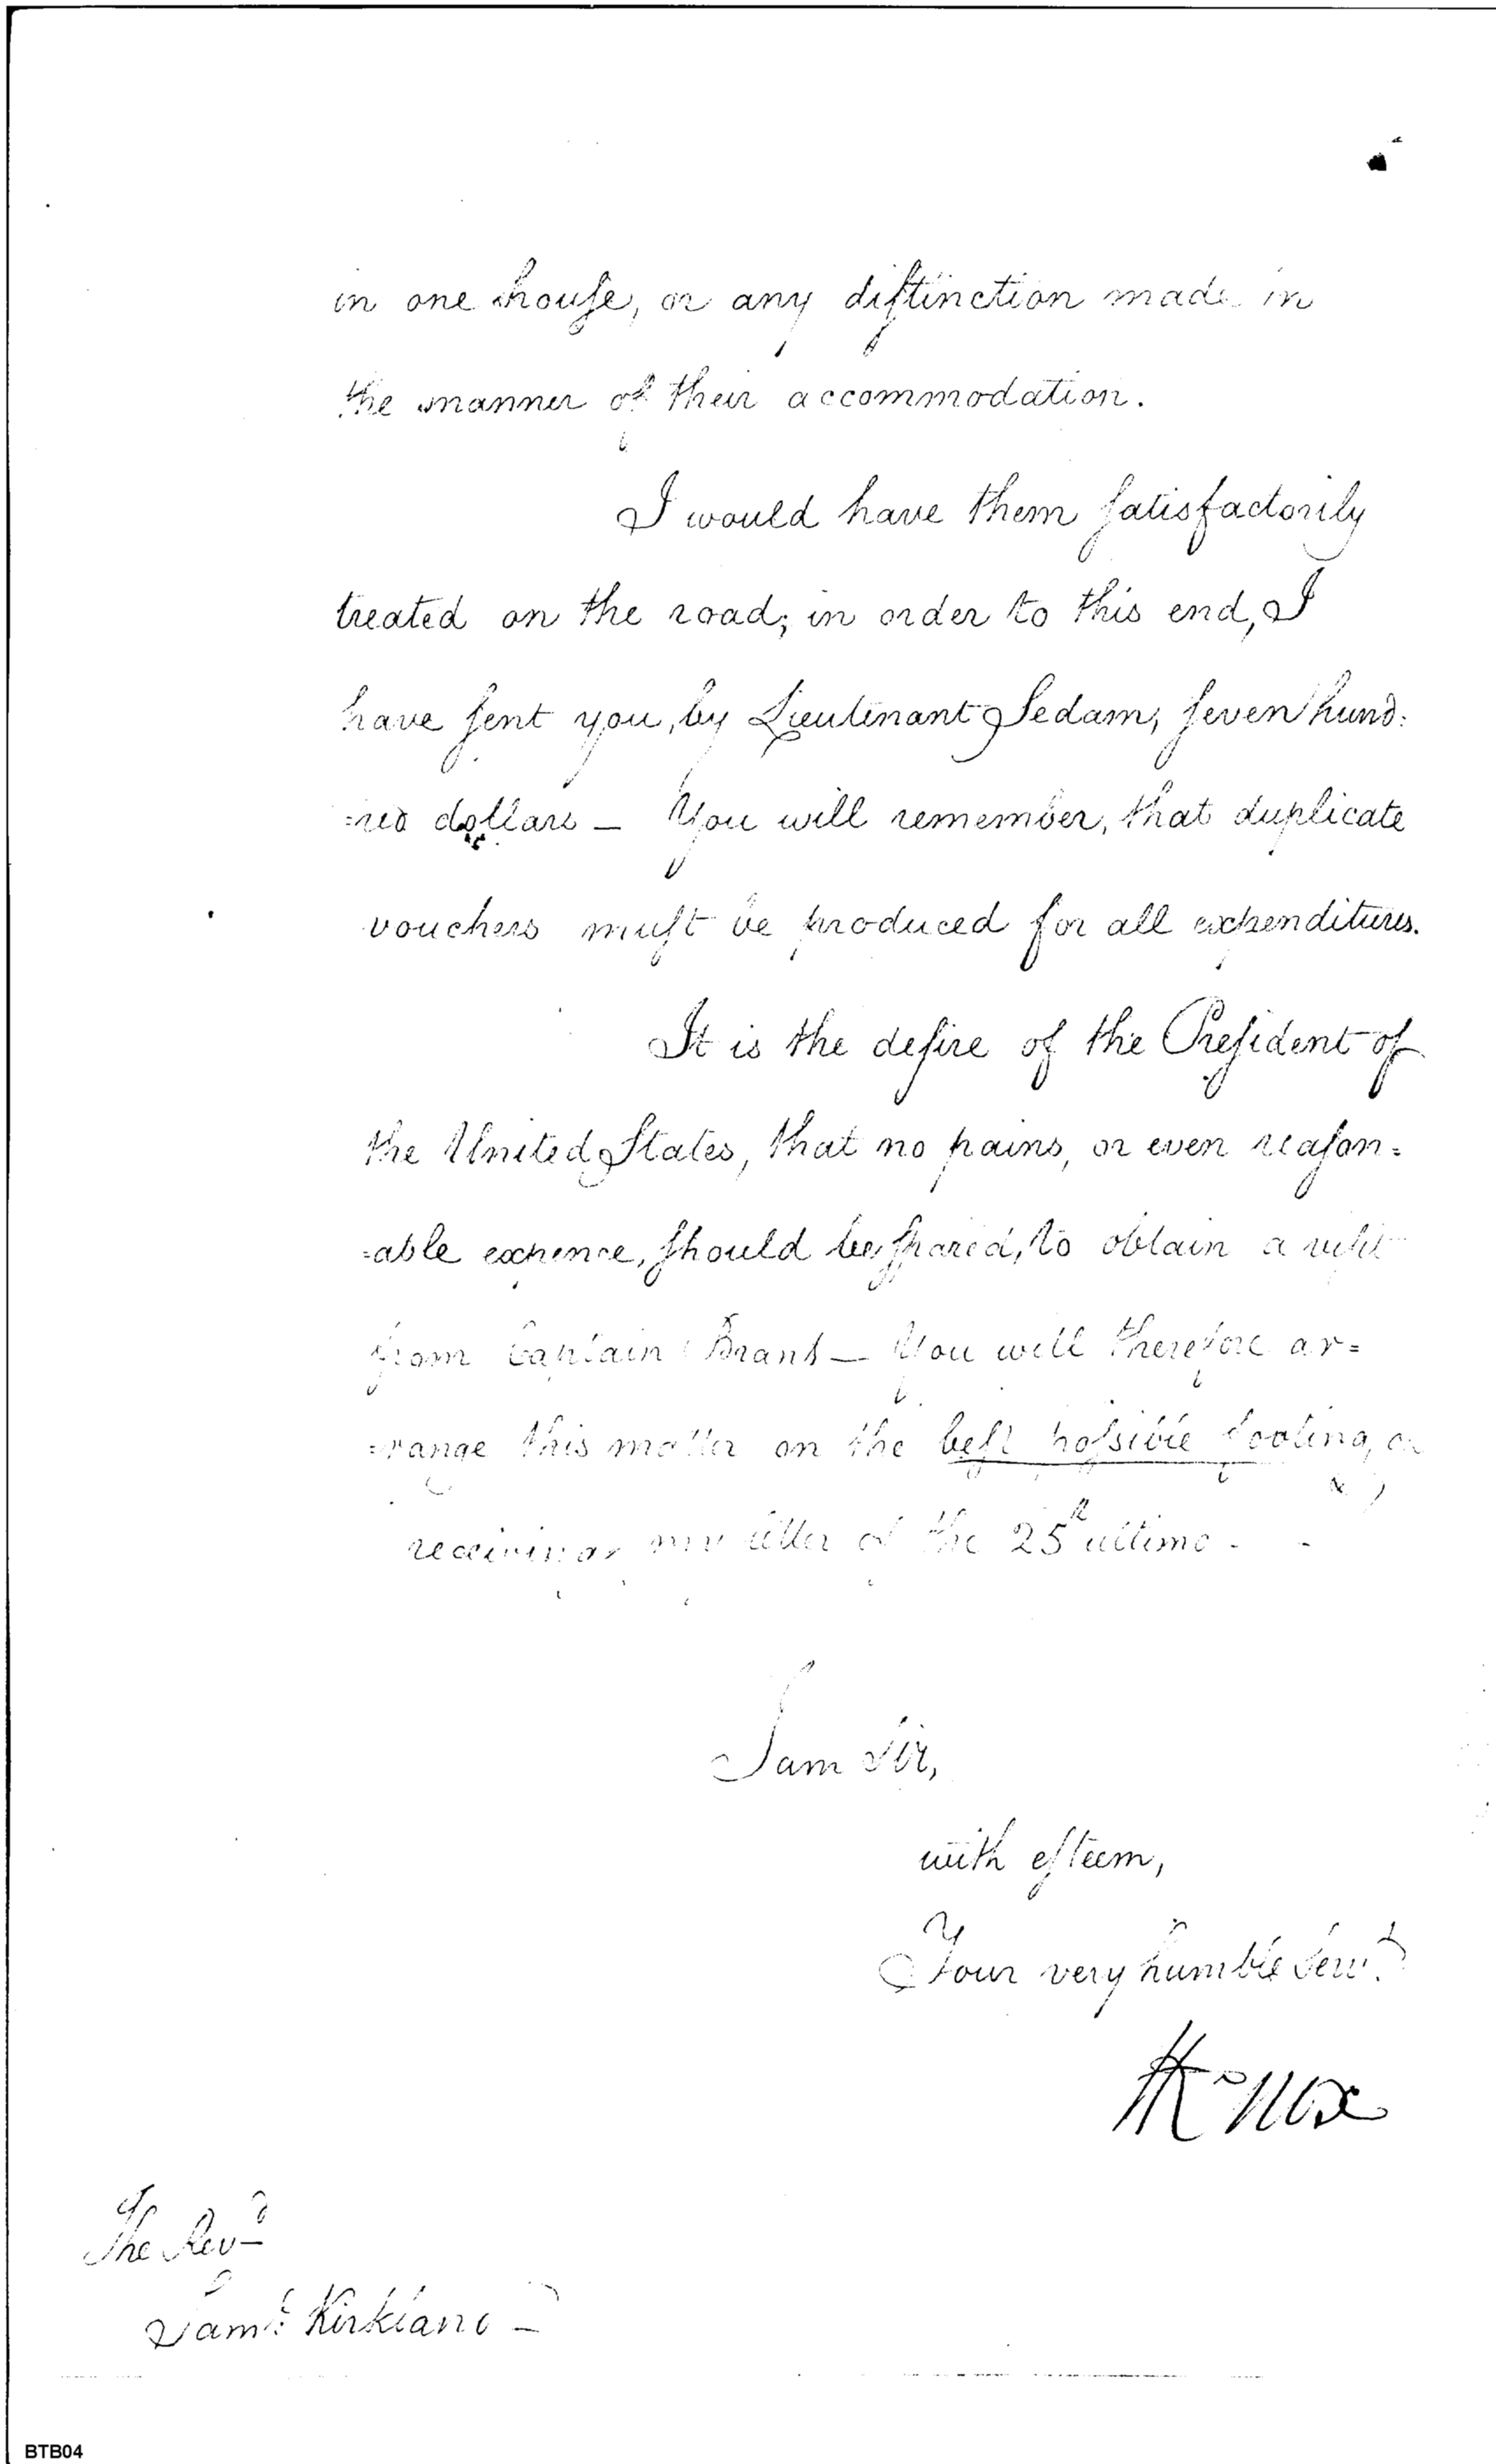 in one house, or any distinction made in
the manner of their accommodation.
I would have them satisfactorily
treated on the road; in order to this end, I
have sent you, by Lieutenant Sedam, seven hund=
=red dollars — You will remember, that duplicate
vouchers must be produced for all expenditures.
It is the desire of the President of
the United States, that no pains, or even reason=
=able expence, should be spared, to obtain a visit
from Captain Brant — You will therefore ar=
=range this matter on the best possible footing,
receiving my letter of the 25th ultimo.
I am Sir,
with esteem,
Your very humble Servt
HKnox
The Revd
Saml Kirkland —
BTB04